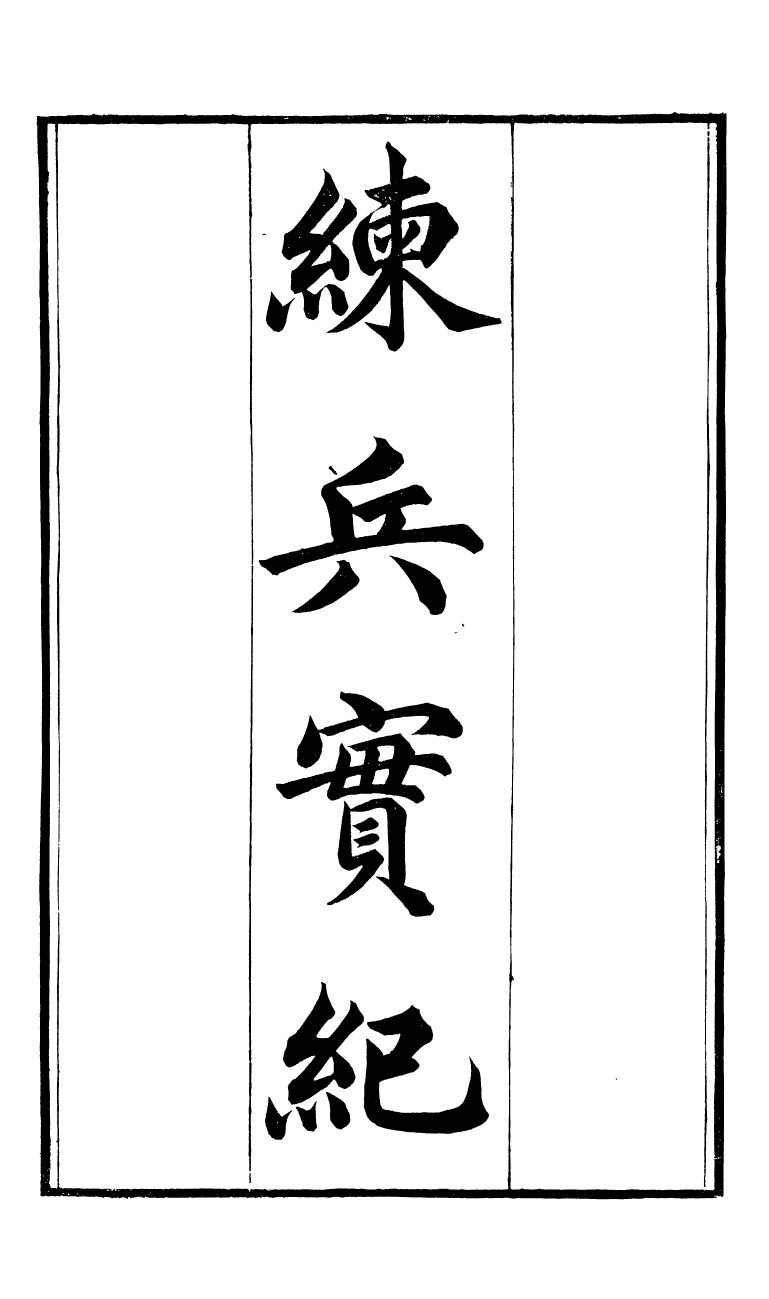 練兵實紀